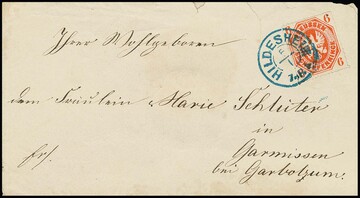 Ihrer Wohlgeboren
HILDESHEIM
6
6
PFENNINGE
dem Fräulein Marie Schlüter
in
Garmissen
bei Garbolzum.
frf.